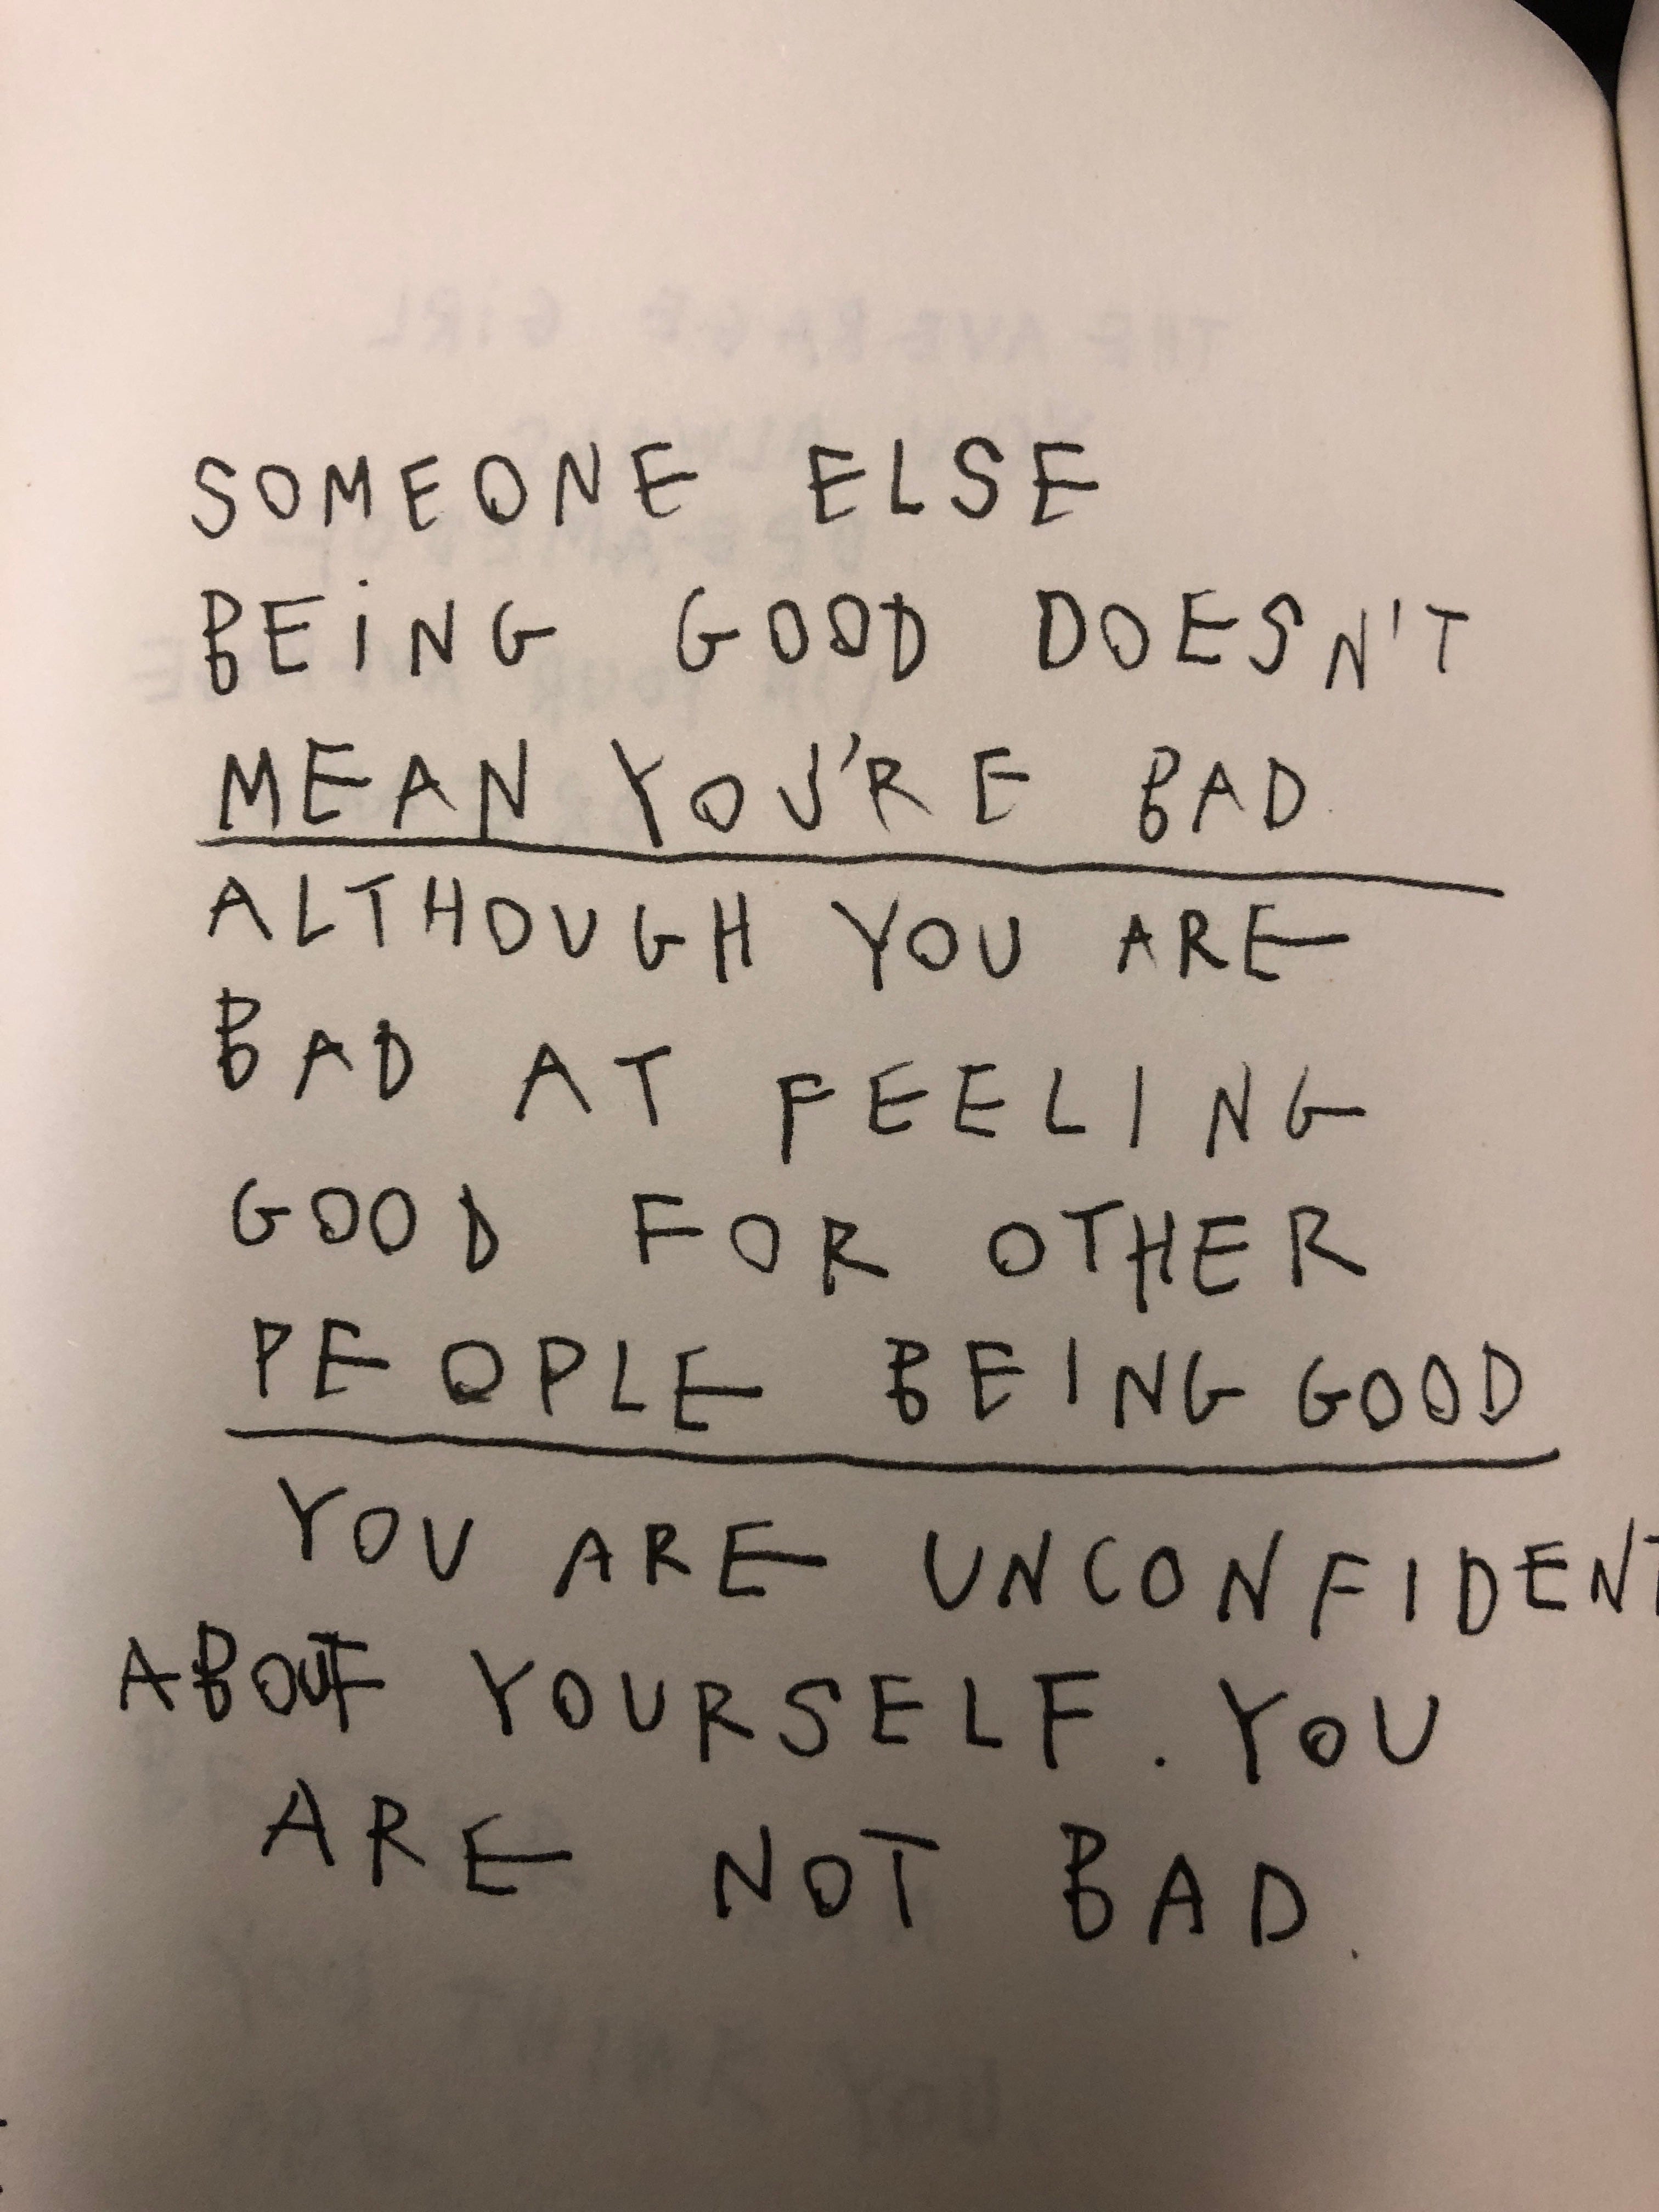 SOMEONE ELSE
BEiNG GOOD DOESN'T
MEAN YOU'RE BAD.
ALTHOUGH YOU ARE
BAD AT FEELING
GOOD FOR OTHER
PEOPLE BEING GOOD
YOU ARE UNCONFIDENT
ABOUT YOURSELF. YOU
ARE NOT BAD.